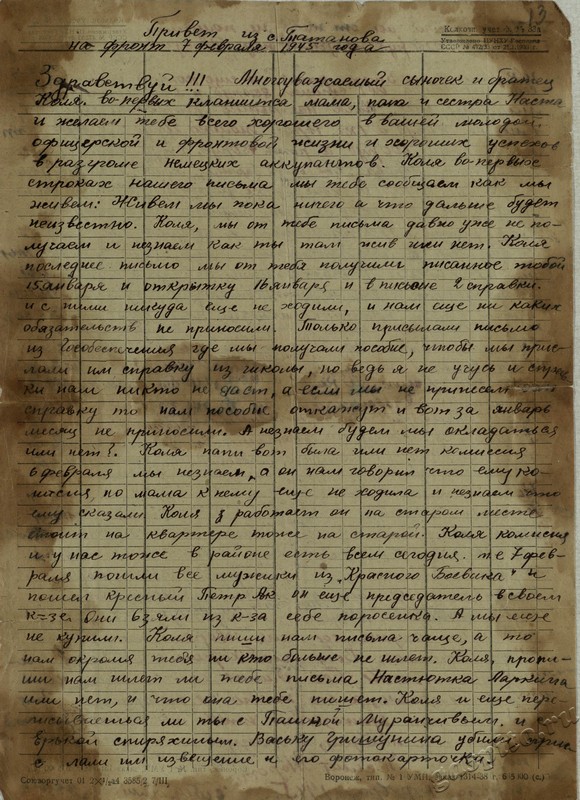 13
Привет из с. Татанова
на фронт 7 февраля 1945 года
Колхозн. учет
Здравствуй!!! Многоуважаемый сыночек и братец
Коля. во-первых кланиются мама, папа и сестра Настя
и желаем тебе всего хорошего в вашей молодой
офицерской и фронтовой жизни и хороших успехов
в разгроме немецких аккупантов. Коля во-первых
строках нашего письма мы тебе сообщаем как мы
живем: Живем мы пока ничего а что дальше будет
неизвестно. Коля, мы от тебе письма давно уже не по-
лучаем и незнаем как ты там жив или нет. Коля
последнее письмо мы от тебя получили писанное тобой
15 января и открытку 16 января и в письме 2 справки.
и с ними никуда еще не ходили, и нам еще ни каких
обязательств не приносили. Только присылали письмо
из Гособеспечения где мы получали пособие, чтобы мы прис-
лали им справку из школы, но ведь я не учусь и справ-
ки нам никто не даст, а если мы не принесем
справку то нам пособие откажут и вот за январь
месяц не приносили. А незнаем будем мы окладаться
или нет? Коля папи вот была или нет комиссия
6 февраля мы незнаем, а он нам говорил что ему ко-
миссия но мама к нему еще не ходила и незнаем что
ему сказали. Коля работает он на старом месте
стоит на квартере тоже на старой. Коля комисия
и у нас тоже в районе есть всем сегодня. т.е 7 фев-
раля пошли все мужики из "Красного Боевика" и
пошел кресный Петр Як он еще председатель в своем
к=зе. Они взяли из к-за себе поросенка. А мы еще
не купили. Коля пиши нам письма чаще, а то
нам окромя тебя ни кто больше не шлет. Коля, пропи-
ши нам шлет ли тебе письма Настютка Ларкина
или нет, и что она тебе пишет. Коля и еще пере-
писываешься ли ты с Пашкой Муранчивым. и с
спиряхиным. Ваську Гришунина убили прис-
лали им извещение и его фотокарточки.
Союзоргучет
Воронеж, тип. № 1